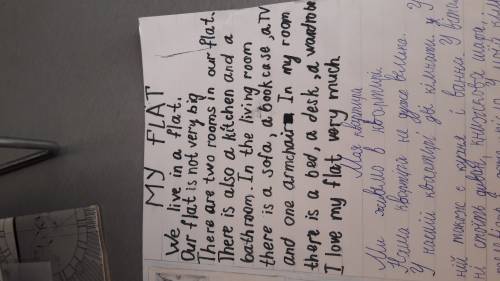 MY FLAT
We live in a flat.
Our flat is not very big
There are two rooms in our flat.
There is also a kitchen and a
bathroom. In the living room
there is a sofa, a bookcase, a TV
and one armchair. In my room
there is a bed, a desk, a wardrobe
I love my flat very much
Моя квартира
Ми живемо в квартирі.
Наша квартира не дуже велика.
У нашій квартирі дві кімнати. У
ній також є кухня і ванна. У
ні стоїть диван, книжкова шафа,